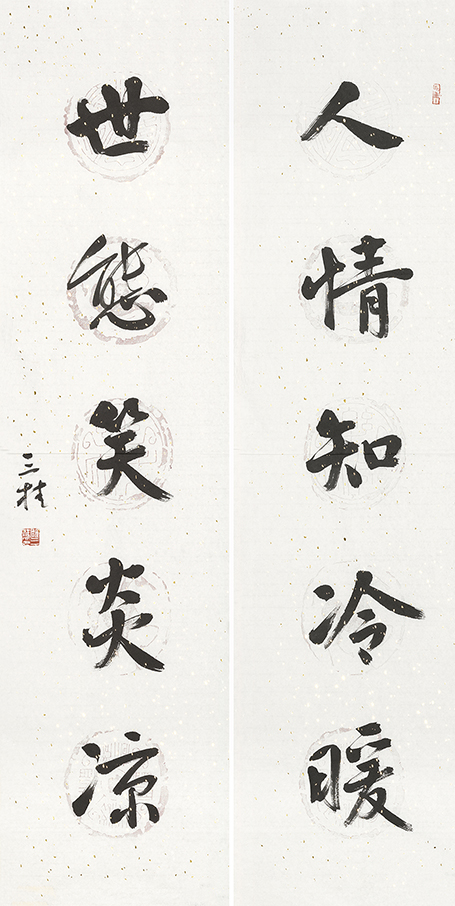 人情知冷暖
世態笑炎凉
三桂